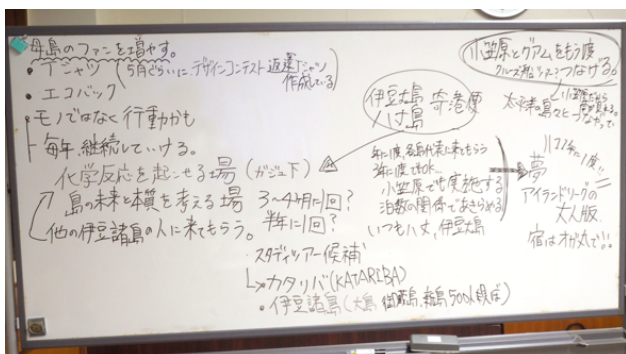 母島のファンを増やす。
・Tシャツ (5月ぐらいに、デザインコンテスト 返還Tシャツ
作成している)
・エコバック
・モノではなく行動かも
毎年、継続していける。
化学反応を起こせる場 (ガジュ下)
島の未来と本質を考える場 3〜4ヶ月に1回?
半年に1回?
他の伊豆諸島の人に来てもらう。
・スタディツアー候補
カタリバ(KATARIBA)
・伊豆諸島(大島 御蔵島、新島 500人規模)
伊豆大島 寄港便
八丈島
年に1度、各島代表に来てもらう
3年に1度でもOK…
小笠原でも実施する
泊数の関係であきらめる
いつも八丈、伊豆大島
小笠原とグアムをもう1度
つなげる。
太平洋の島々とつながって
夢
アイランドリーグの
大人版
宿はおが丸で!!